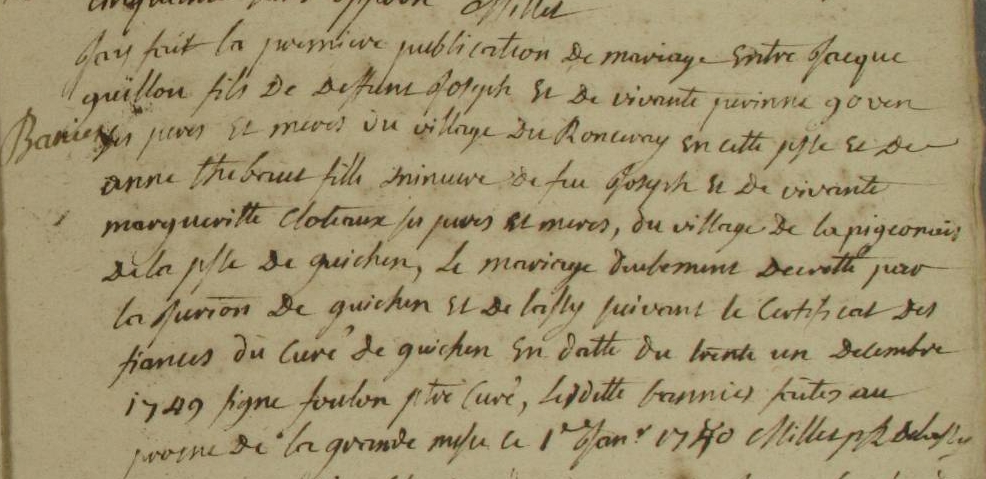 Millet
J'ay fait la premiere publication de mariage Entre Jacque
guillou fils De Deffunt Joseph Et De vivante perinne goven
Banies
ses peres Et meres du village Du Ronceray En cette psse Et De
anne thebaut fille mineure De feu Joseph Et De vivante
margueritte Cloteaux ses peres Et meres, du village De la pigeonais
De la psse De guichen, Le mariage duëbement Decretté par
la jurion De guichen Et De lassy suivant le Certificat Des
fiances du Curé De guichen En datte du trente un Decembre
1749 signe foulon ptre Curé, Lesdittes bannies faites au
prosne De la grande messe le 1er Janr 1750 Millet De lassy